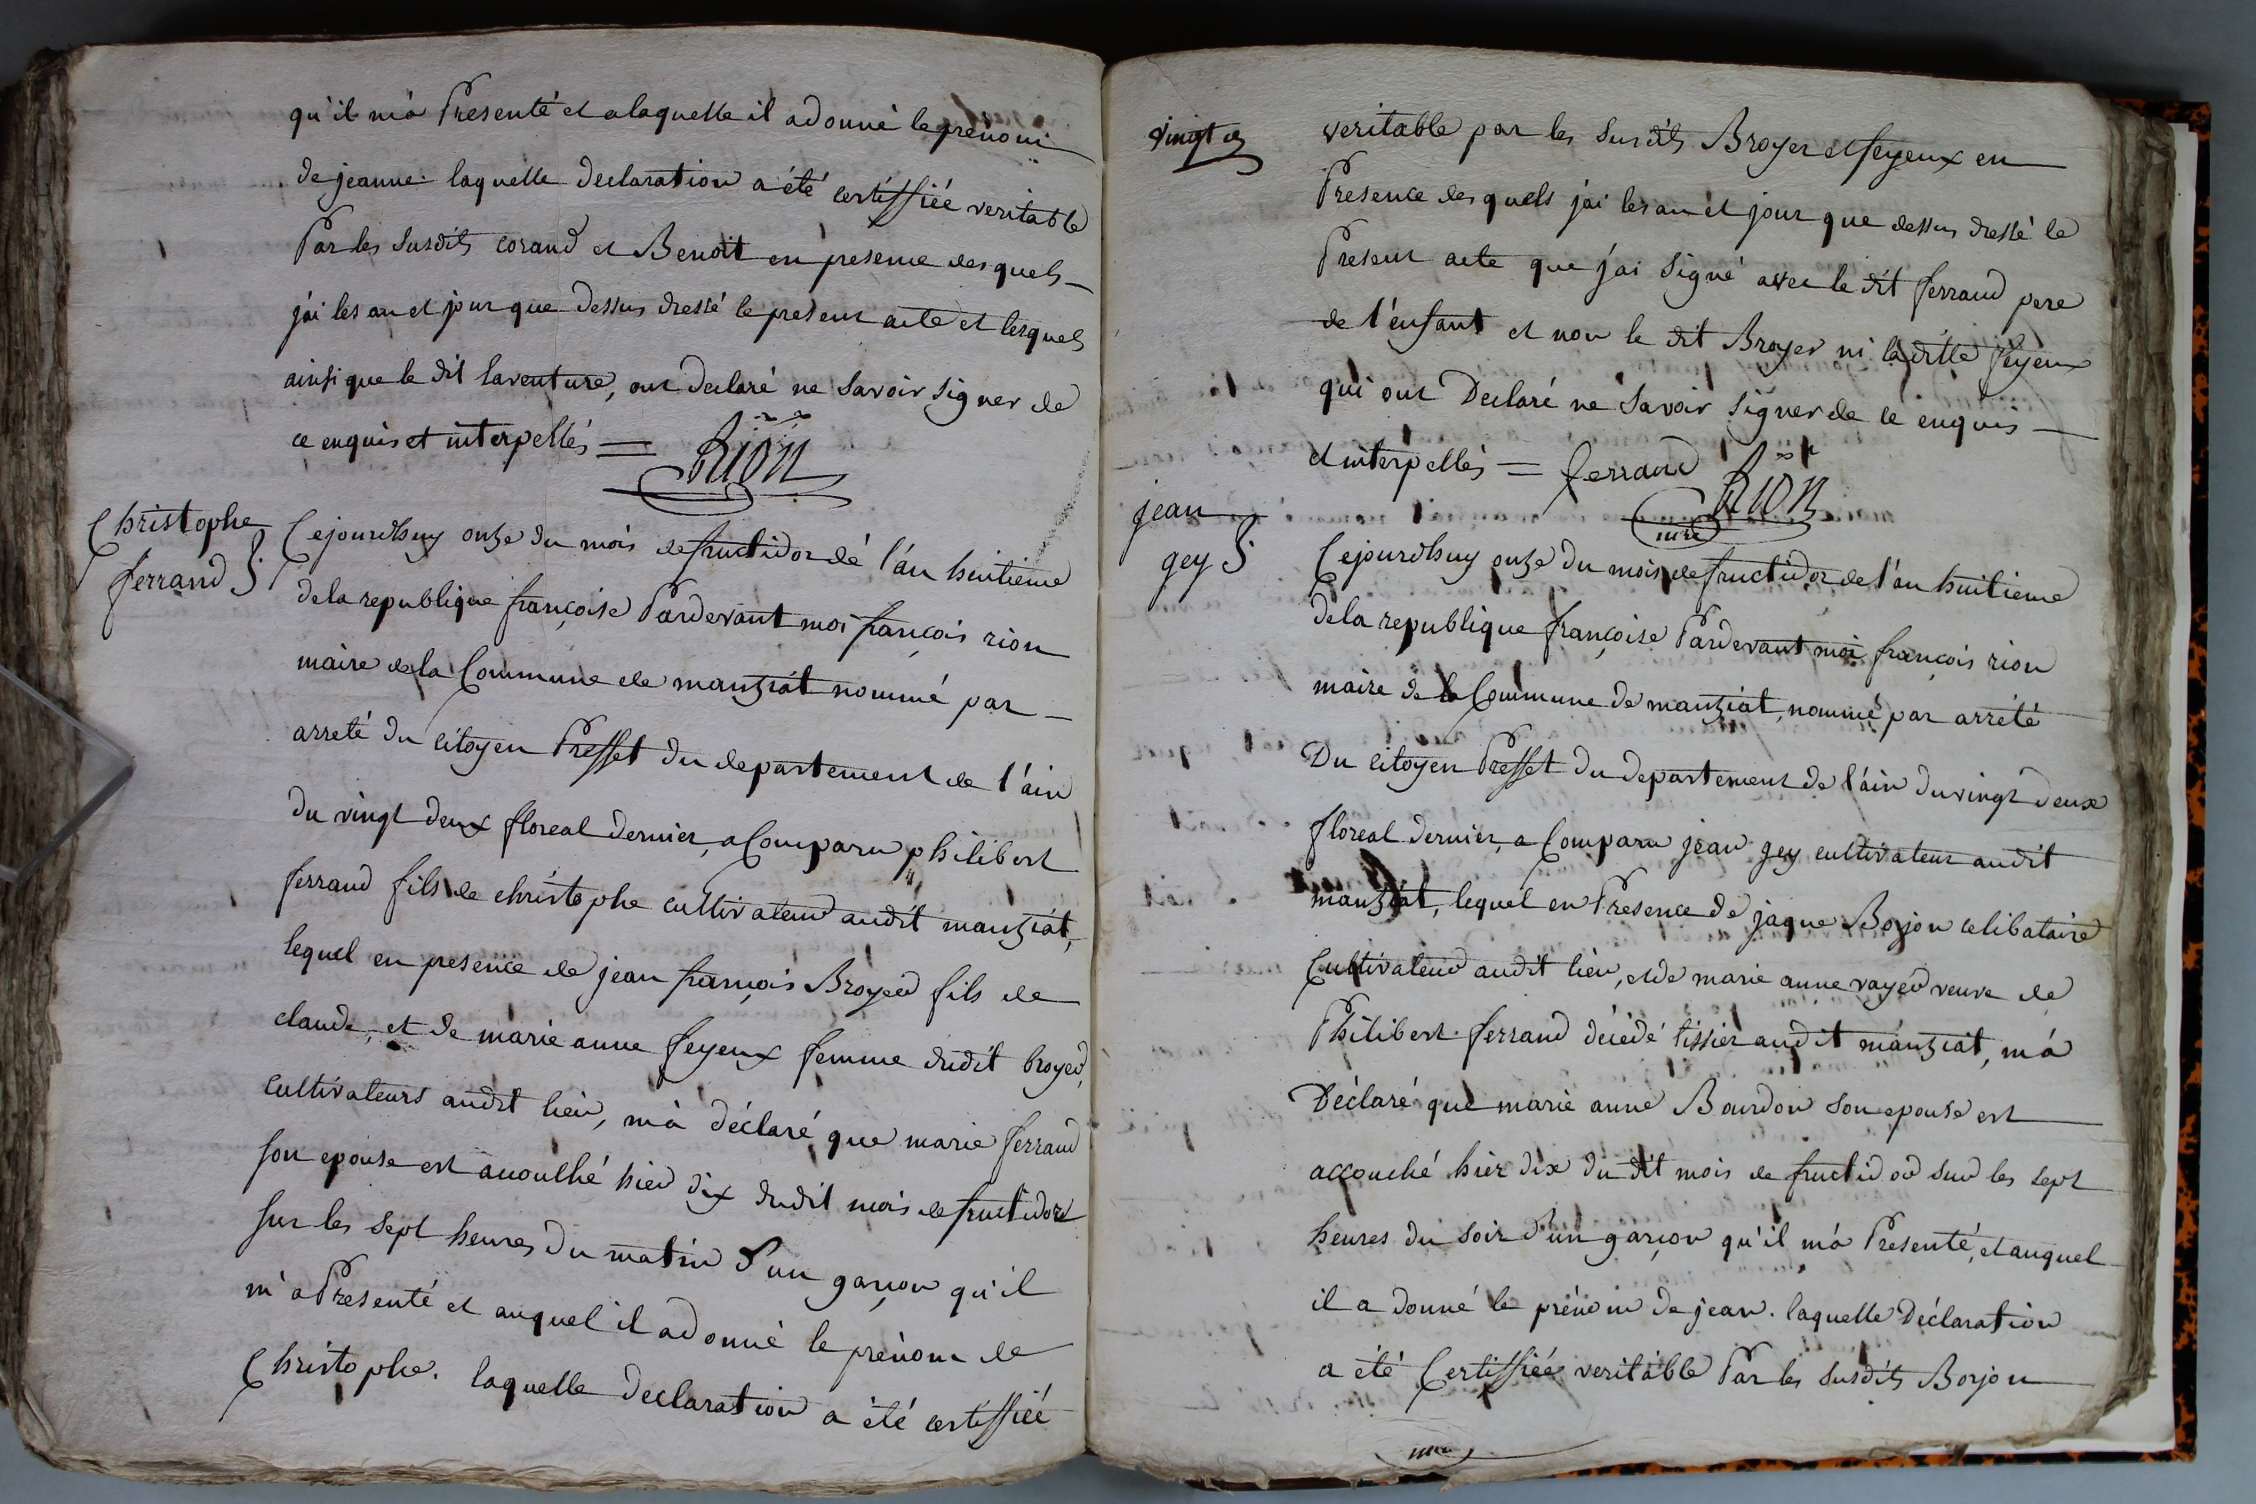 qu'il m'a Presenté et alaquelle il adonné leprenom
de jeanne. laquelle declaration a été certiffiée veritable
Par les susdits corand et Benoit en presence desquels
j'ai les an et jour que dessus dressé le present acte et lesquels
ainsi que le dit laventure, ont declaré ne savoir signer de
ce enquis et interpellés = Rion
Christophe
ferrand
Cejourdhuy onze du mois de fructidor de l'an huitieme
dela republique françoise Pardevant moi françois rion
maire de la Commune de manziat nommé par
arreté du citoyen Preffet du departement de l'ain
du vingt deux floreal dernier, a Comparu philibert
ferrand fils de christophe cultivateur audit manziat,
lequel en presence de jean françois Broyer fils de
claude, et de marie anne feyeux femme dudit broyer,
cultivateurs audit lieu, m'a déclaré que marie ferrand
son epouse est accouché hier dix dudit mois de fructidor
sur les sept heures du matin d'un garçon qu'il
m'a Presenté et auquel il adonné le prénom de
Christophe. laquelle declaration a été certiffiée
vingt
veritable par les susdits Broyer et feyeux en
Presence desquels j'ai les an et jour que dessus dressé le
Present acte que j'ai signé avec le dit ferrand pere
de l'enfant et non le dit Broyer ni laditte feyeux
qui ont Declaré ne savoir signer de ce enquis
et interpellés = ferrand Rion
mre
jean
gey
Cejourdhuy onze du mois de fructidor de l'an huitieme
dela republique françoise Pardevant moi françois rion
maire de la Commune de manziat, nommé par arrêté
Du citoyen Preffet du departement de l'ain du vingt deux
floreal dernier, a Comparu jean gey cultivateur audit
manziat, lequel en Presence de jaque Borjon celibataire
Cultivateur audit lieu, et de marie anne vayer veuve de
Philibert ferrand décédé tissier audit manziat, m'a
Déclaré que marie anne Bourdon son epouse est
accouché hier dix du dit mois de fructidor sur les sept
heures du soir d'un garçon qu'il m'a Presenté, et auquel
il a donné le prénom de jean. laquelle Déclaration
a été Certiffiée veritable Par les susdits Borjon